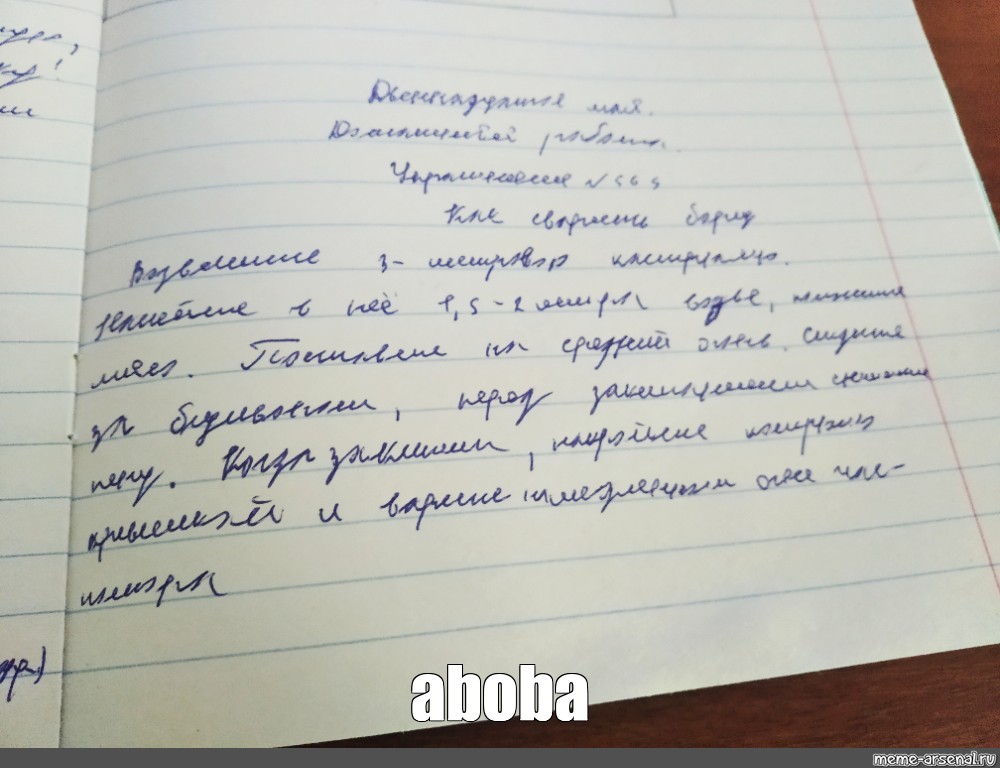 Двенадцатое мая.
Домашняя работа.
Упражнение №565
Как сварить борщ
Возьмите 3-литровую кастрюлю.
Налейте в неё 1,5-2 литра воды,
мясо. Поставьте на средний огонь. Следите
за бульоном, перед закипанием снимите
пену. Когда закипит, накройте кастрюлю
крышкой и варите на медленном огне час-
полтора
aboba
meme-arsenal.ru